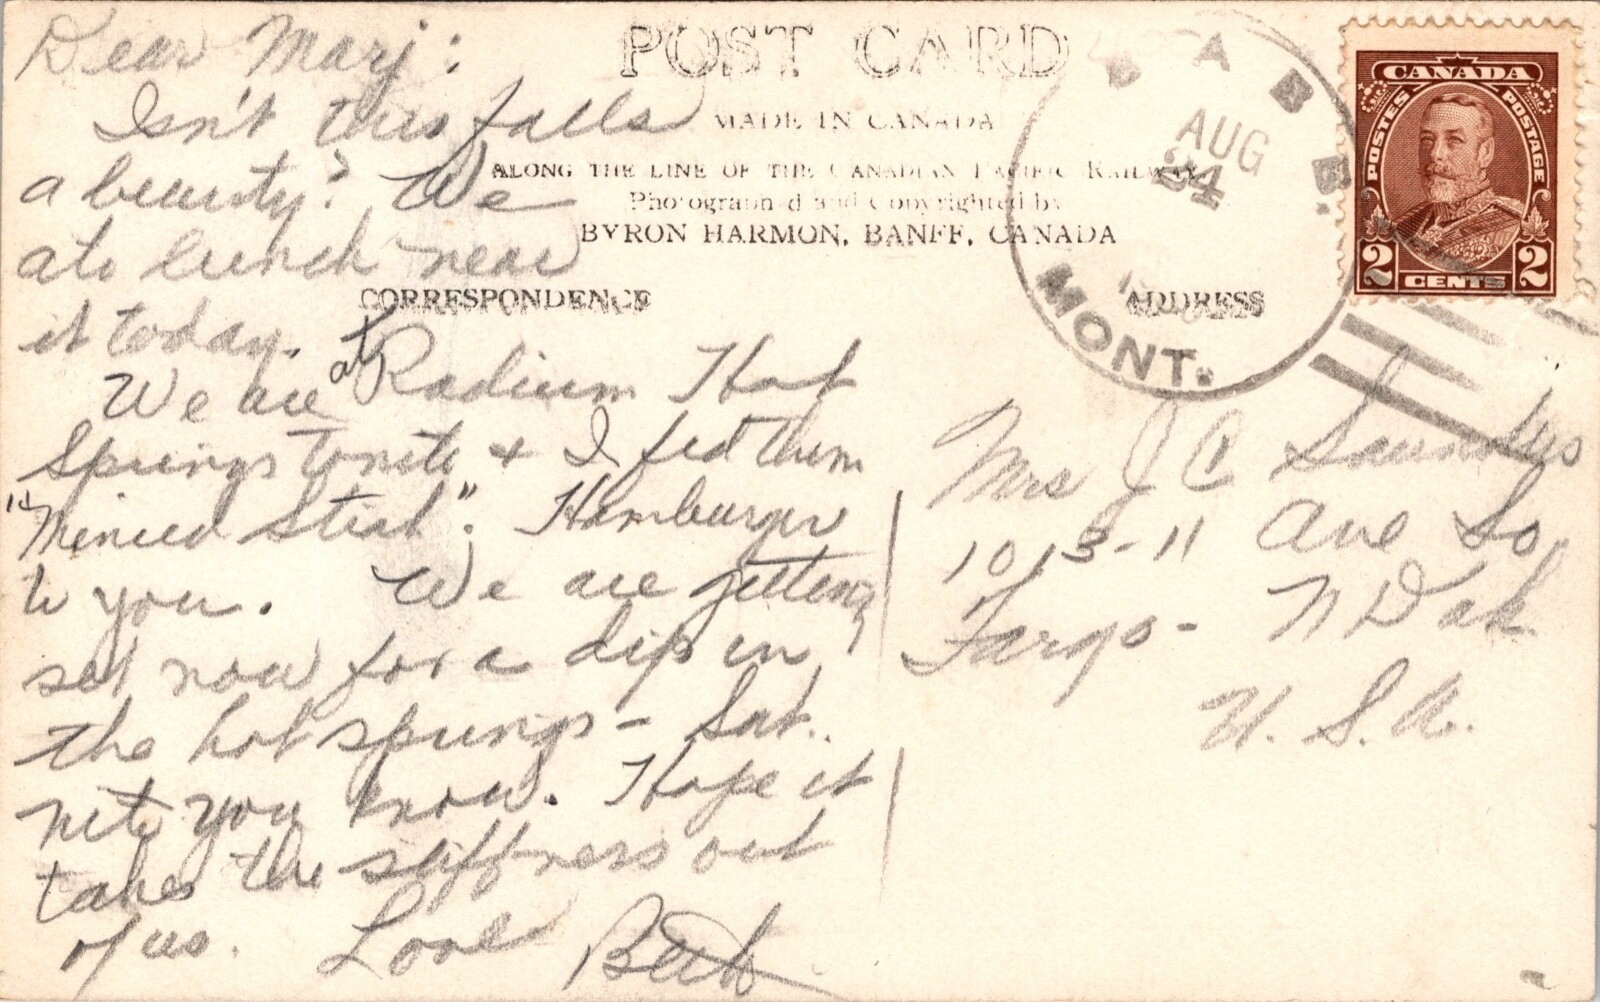 Dear Marj:
Isn't this falls
a beauty? We
ate lunch near
it today.
We are at Radium Hot
Springs tonite & I fed them
"Minced Steak". Hamburger
to you. We are getting
set now for a dip in
the hot springs - Sat.
nite you know. Hope it
takes the stiffness out
of us. Love
POST CARD
MADE IN CANADA
ALONG THE LINE OF THE CANADIAN PACIFIC RAILWAY
Photographed and Copyrighted by
BYRON HARMON, BANFF, CANADA
CORRESPONDENCE
ADDRESS
BABB.
AUG
24
MONT.
CANADA
POSTES POSTAGE
2 CENTS 2
Mrs J C Saunders
1013-11 Ave So,
Fargo - N Dak
U. S. A.